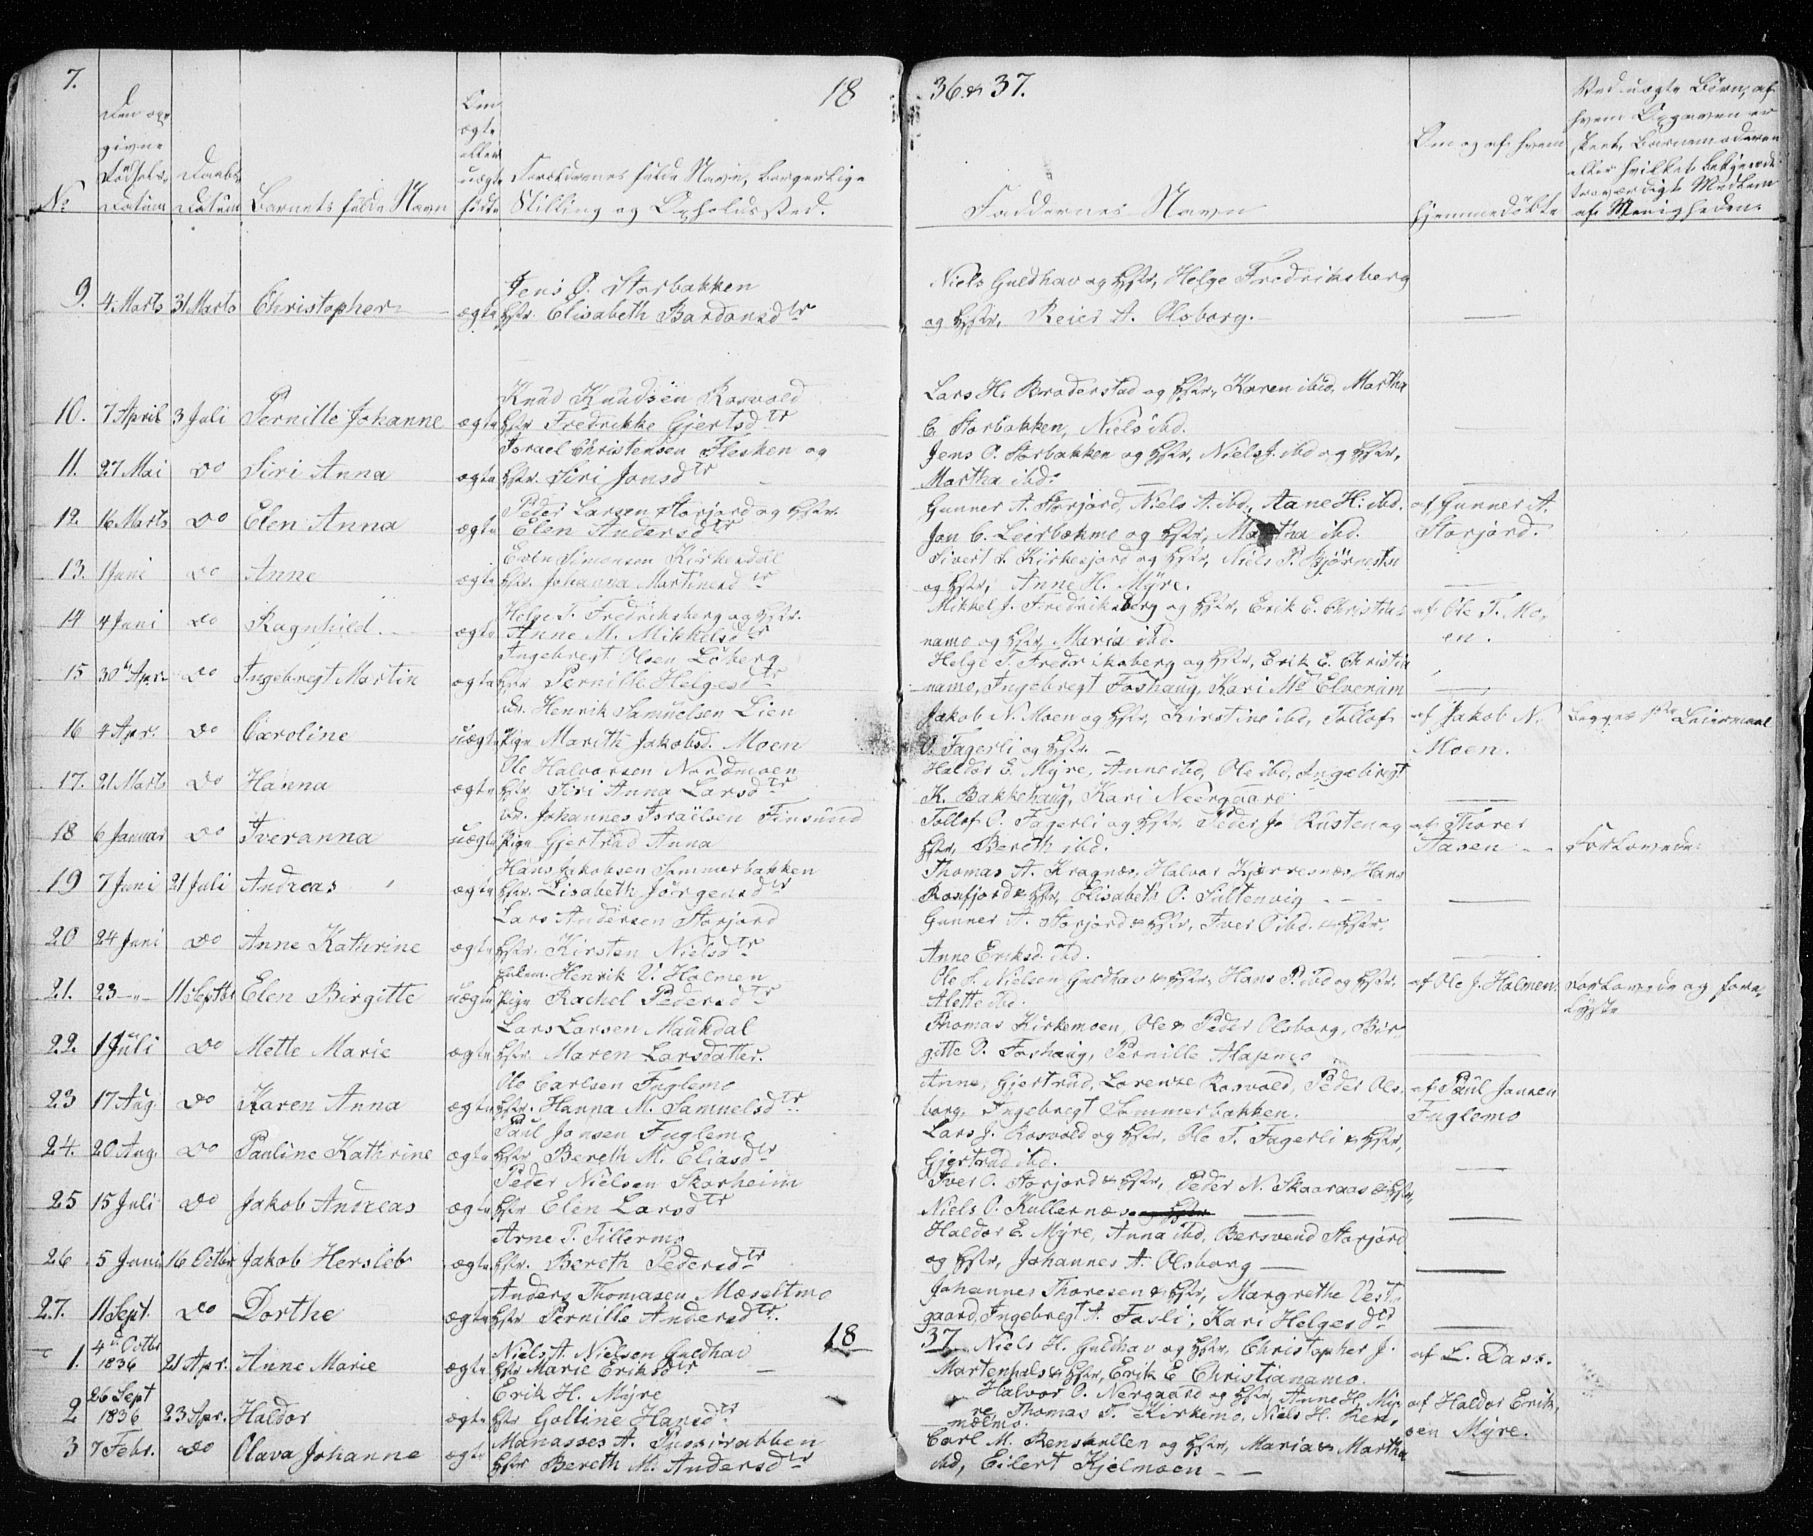 7. 18 36 & 37.
No
Den op-
givne
Fødsels-
Datum
Daabs-
Datum
Barnets fulde Navn
Om
ægte
eller
uægte
fødte
Forældrenes fulde Navn, borgerlige
Stilling og Opholdssted.
Faddernes Navn
Om og af hvem
hjemmedöbte
Ved uægte Börn, af
hvem Opgaven er
skeet, Barnemoderen
eller hvilket bekjendt
troværdigt Medlem
af Menigheden.
9. 4 Marts 31 Marts Christopher ægte
Jens O. Storbakken
Hstr. Elisabeth Bardonsdtr
Niels Guldhav og Hstr, Helge Fredriksberg
og Hstr, Reier A. Olsborg.
10. 7 April 3 Juli Pernille Johanne ægte
Knud Knudsen Rosvold
Hstr Fredrikke Gjertsdtr
Lars H. Braderstad og Hstr, Karen ibid, Martha
C. Storbakken, Niels ibd.
11. 27 Mai do Siri Anna ægte
Israel Christensen Flesken og
Hstr. Siri Jonsdtr
Jens O. Storbakken og Hstr, Niels J. ibd og Hstr,
Martha ibd.
12. 16 Marts do Elen Anna ægte
Peder Larsen Storjord og Hstr.
Elen Andersdtr
Gunner A. Storjord, Niels A. ibd, Aane H. ibd.
Jon C. Leirbekmo og Hstr, Martha ibd.
af Gunner A.
Storjord.
13. 1 Juni do Anne ægte
Even Simonsen Kirkesdal
Hstr. Johanna Martinesdtr
Sivert S. Kirkesjord og Hstr, Niels P. Bjørnstad
og Hstr, Anne H. Mÿre.
14 4 Juni do Ragnhild ægte
Helge T. Fredriksberg og Hstr.
Anne M. Mikkelsdtr
Mikkel J. Fredriksberg og Hstr, Erik E. Christia-
namo og Hstr, Maria ibd.
af Ole T. Mo-
en.
15 30te Apr. do Ingebregt Martin ægte
Ingebregt Olsen Löberg
Hstr Pernille Helgesdtr
Helge T. Fredriksberg og Hstr, Erik E. Christia
namo, Ingebregt Foshaug, Kari Md Elverum
16 4 Apr. do Caroline uægte
Henrik Samuelsen Lien
Pige Marith Jakobsd. Moen
Jakob N. Moen og Hstr, Kirstine ibd, Tollof
O. Fagerli og Hstr.
af Jakob N.
Moen.
begges 1ste Leiermaal
17. 21 Marts do Hanna ægte
Ole Halvorsen Nordmoen
Hstr. Siri Anna Larsdtr
Haldor E. Mÿre, Anne ibd, Ole ibd, Ingebregt
K. Bakkehaug, Kari Neergaard.
18 6 Januar do Iveranna uægte
Johannes Israelsen Finsund
Pige Gjertrud Anna
Tollof O. Fagerli og Hstr, Peder Jo Rusten og
Hstr, Bereth ibd.
af Thorer
Aasen
Forlovede.
19 7 Juni 21 Juli Andreas ægte
Hans Jakobsen Sommerbakken
Hstr. Lisabeth Jörgensdtr
Thomas A. Kragnæs, Halvor Kjerresnæs, Hans
Rossfjord & Hstr, Elisabeth O. Sultenvig
20 24 Juni do Anne Kathrine ægte
Lars Andersen Storjord
Hstr. Kirsten Nielsdtr
Gunner A. Storjord & Hstr, Iver O ibd. & Hstr.
Anne Eriksd. ibd.
21. 23 -"- 11 Septbr Elen Birgitte uægte
Henrik O. Holmen
Pige Rachel Pedersdtr
Ole J. Nielsen Guldhav & Hstr, Hans P. ibd og Hstr.
Alette ibd.
af Ole J. Holmen.
Forlovede og foreg.
Lÿste
22. 1 Juli do Mette Marie ægte
Lars Larsen Maukdal
Hstr. Maren Larsdatter.
Thomas Kirkemoen, Ole & Peder Olsborg, Bir-
gitte O. Foshaug, Pernille Alapmo
23 17 Aug. do Karen Anna ægte
Ole Carlsen Fuglemo
Hstr. Hanna M. Samuelsdtr
Anne, Gjertrud, Lorentze Rosvold, Peder Ols-
borg, Ingebregt Sommerbakken.
af Paul Jansen
Fuglemo
24. 20 Aug. do Pauline Kathrine ægte
Paul Jansen Fuglemo
Hstr Bereth M. Eliasdtr
Lars J. Rosvold og Hstr, Ole T. Fagerli & Hstr,
Gjertrud ibd.
25 15 Juli do Jakob Andreas ægte
Peder Nielsen Skarheim
Hstr Elen Larsdtr
Iver O. Storjord & Hstr, Peder N. Skaaraas & Hstr,
Niels O. Kullernæs
26 5 Juni 16 Octbr Jakob Hersleb ægte
Arne P. Tillermo
Hstr. Bereth Pedersdtr
Haldor E. Mÿre, Anna ibd, Bersvend Storjord
og Hstr, Johannes A. Olsborg
27. 11 Sept. do Dorthe ægte
Anders Thomasen Mæseltmo
Hstr Pernille Andersdtr.
Johannes Thoresen & Hstr, Margrethe Vest-
gaard, Ingebregt A. Fosli, Kari Helgesdtr
18 37
1. 4de Octbr
1836 21 Apr. Anne Marie ægte
Niels A. Nielsen Guldhav
Hstr Marie Eriksdtr
Niels H. Guldhav og Hstr, Christopher J.
Martenhals & Hstr, Erik E. Christianamo.
af L. Dass.
2 26 Sept
1836 23 Apr. Haldor ægte
Erik H. Mÿre
Hstr Golline Hansdtr
Halvor O. Nergaard og Hstr, Anne H. Mÿ-
re, Thomas T. Kirkemo, Niels H. Ken-
nelmo.
af Haldor Erik-
sen Mÿre.
3 7 Febr. do Olava Johanne ægte
Manasses A.
Hstr Bereth M. Andersdtr
Carl M. Renskullen og Hstr, Maria & Martha
ibd, Eilert Kjelmoen